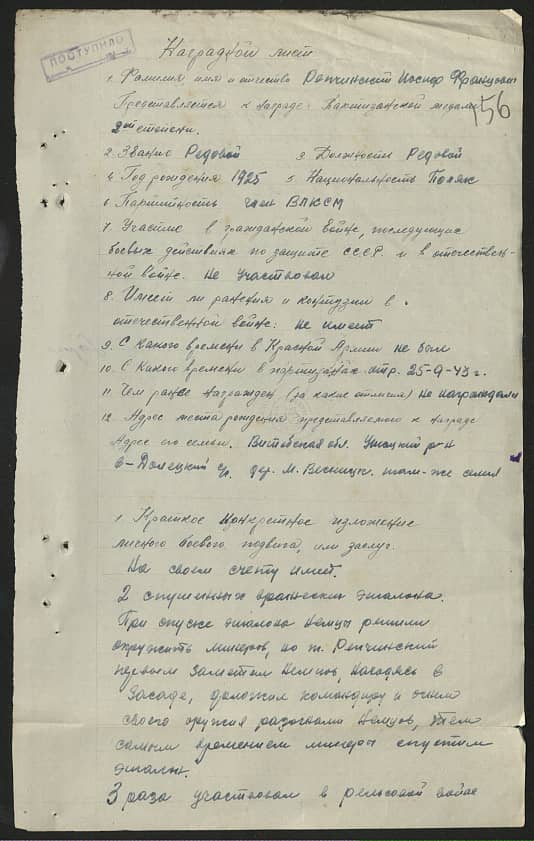 ПОСТУПИЛО
Наградной лист
1. Фамилия имя и отчество Репчинский Иосиф Францович
Представляется к награде Партизанской медали
156
2ой степени.
2. Звание Редовой 3. Должность Редовой
4. Год рождения 1925 5. Национальность Поляк
6. Партийность член ВЛКСМ
7. Участие в гражданской войне, последующие
боевых действиях по защите СССР и в отечествен-
ной войне. Не участвовал
8. Имеет ли ранения и контузии в
отечественной войне: не имеет
9. С какого времени в Красной Армии не был
10. С какого времени в партизанах отр. 25-9-43 г.
11. Чем ранее награжден (за какие отличия) не награждали
12. Адрес места рождения представляемого к награде
Адрес его семьи. Витебская обл. Ушацкий р-н
дер. М. Весницк. там-же семья
1. Краткое конкретное изложение
личного боевого подвига, или заслуг.
На своем счету имеет.
2 спущенных вражеских эшалона.
При спуске эшалона немцы решили
окружить минеров, но т. Репчинский
первым заметил немцов, находясь в
засаде, доложил командиру и огнем
своего оружия разогнали немцов, тем
самым временем минеры спустили
эшалон.
3 раза участвовал в рельсовой войне